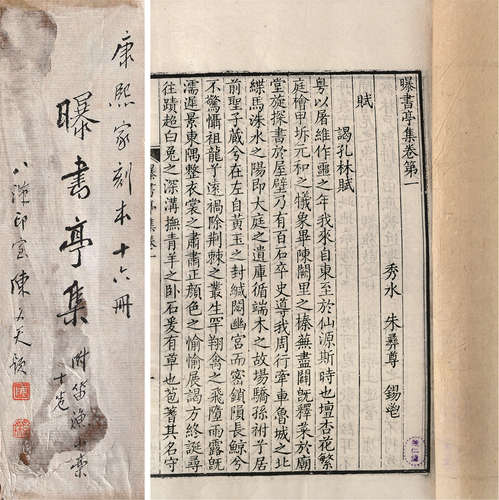 康熙家刻本十六冊
曝書亭集
附笛漁小稾
十卷
曝書亭集卷第一
秀水 朱彝尊 錫鬯
賦
謁孔林賦
粤以屠維作噩之年我來自東至於仙源斯時也壇杏花繁
庭檜甲坼元和之犧象畢陳闕里之榛蕪盡闢旣釋菜於廟
堂旋探書於屋壁乃有百石卒史導我周行牽車魯城之北
緤馬洙水之陽即大庭之遺庫循端木之故場驕孫祔子居
前聖子蔵兮在左自黃玉之封緘閟幽宮而密鎖隕長鯨兮
不驚懾祖龍乎遠禍除荆棘之叢生罕翔禽之飛墮雨露旣
濡遲景東隅整衣裳之肅肅正顏色之愉愉展謁方終誕尋
往蹟超白兔之深溝撫青羊之臥石爰有草也苞蓍其名守